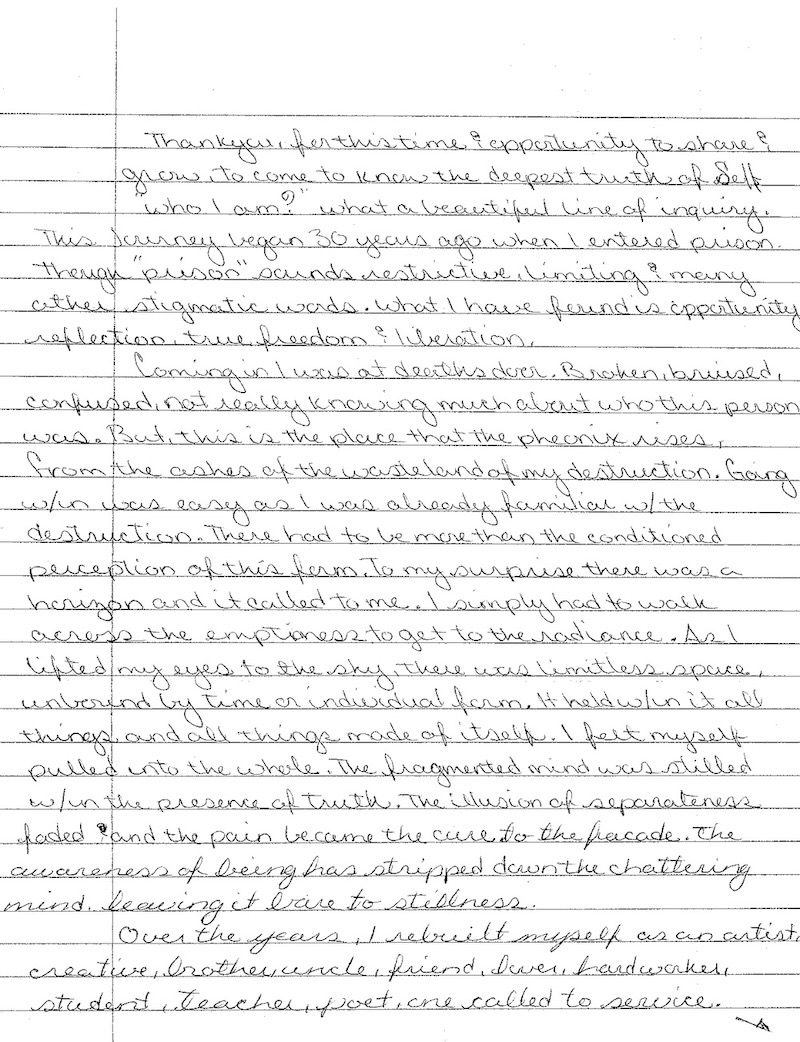 Thankyou, for this time & opportunity to share &
grow, to come to know the deepest truth of Self
"who I am?" what a beautiful line of inquiry.
This Journey began 30 years ago when I entered prison.
Though "prison" sounds restrictive, limiting & many
other stigmatic words. What I have found is opportunity
reflection, true freedom & liberation.
Coming in I was at deaths door. Broken, bruised,
confused, not really knowing much about who this person
was. But, this is the place that the pheonix rises,
from the ashes of the wasteland of my destruction. Going
w/in was easy as I was already familiar w/the
destruction. There had to be more than the conditioned
perception of this form. To my surprise there was a
horizon and it called to me. I simply had to walk
across the emptiness to get to the radiance. As I
lifted my eyes to the sky, there was limitless space,
unbound by time or individual form. It held w/in it all
things, and all things made of itself. I felt myself
pulled into the whole. The fragmented mind was stilled
w/in the presence of truth. The illusion of separateness
faded & and the pain became the cure to the facade. The
awareness of being has stripped down the chattering
mind, leaving it bare to stillness.
Over the years, I rebuilt myself as an artist,
creative, brother, uncle, friend, lover, hardworker,
student, teacher, poet, one called to service.